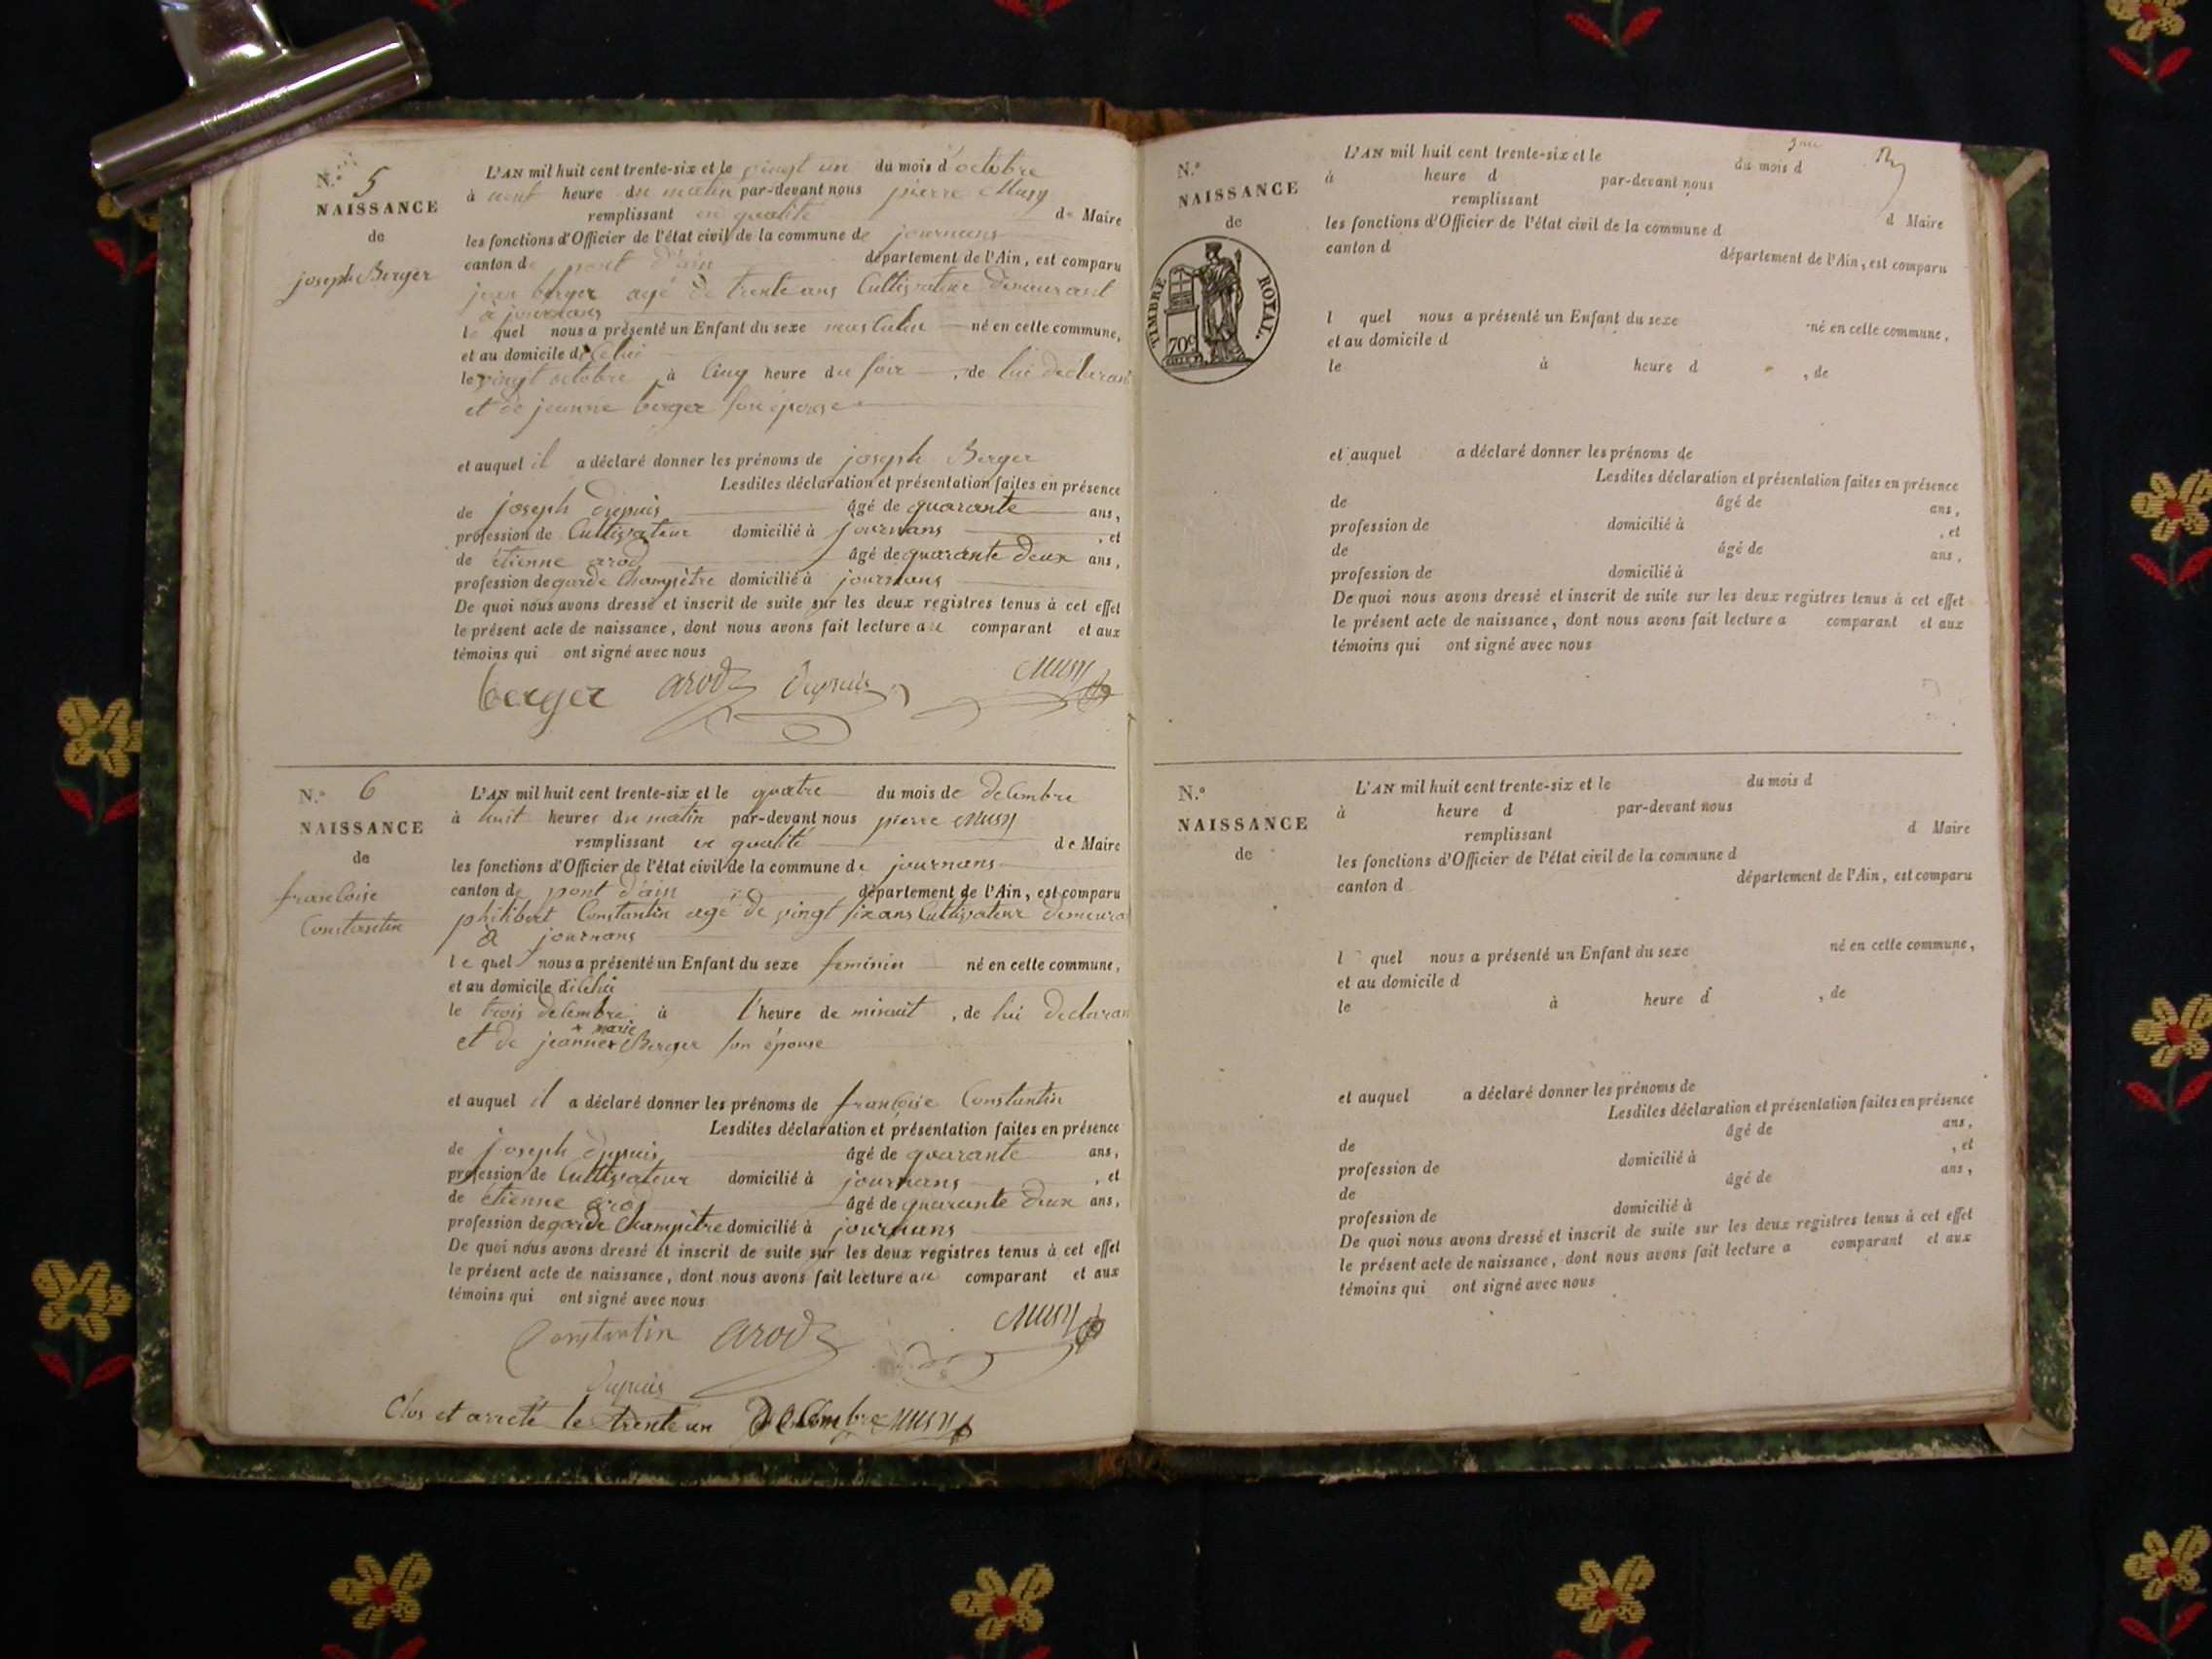 N.° 5
NAISSANCE
de
joseph Berger
L'AN mil huit cent trente-six et le vingt un du mois d'octobre
à neuf heure du matin par-devant nous pierre Musy
remplissant en qualité de Maire
les fonctions d'Officier de l'état civil de la commune de journans
canton de pont d'ain département de l'Ain, est comparu
jean berger agé de trente ans Cultivateur demeurant
à journans
le quel nous a présenté un Enfant du sexe masculin né en cette commune,
et au domicile de Celui
le vingt octobre à Cinq heure du soir, de lui declarant
et de jeanne berger son épouse
et auquel il a déclaré donner les prénoms de joseph Berger
Lesdites déclaration et présentation faites en présence
de joseph dupuis âgé de quarante ans,
profession de Cultivateur domicilié à journans, et
de étienne arod âgé de quarante deux ans,
profession de garde Champêtre domicilié à journans
De quoi nous avons dressé et inscrit de suite sur les deux registres tenus à cet effet
le présent acte de naissance, dont nous avons fait lecture au comparant et aux
témoins qui ont signé avec nous
berger arod dupuis Musy
N.° 6
NAISSANCE
de
francoise
Constantin
L'AN mil huit cent trente-six et le quatre du mois de decembre
à huit heures du matin par-devant nous pierre Musy
remplissant en qualité de Maire
les fonctions d'Officier de l'état civil de la commune de journans
canton de pont d'ain département de l'Ain, est comparu
philibert Constantin agé de vingt six ans Cultivateur demeura
à journans
le quel nous a présenté un Enfant du sexe feminin né en cette commune,
et au domicile de Celui
le trois decembre à l'heure de minuit, de lui declaran
marie
et de jeanne Berger son épouse
et auquel il a déclaré donner les prénoms de francoise Constantin
Lesdites déclaration et présentation faites en présence
de joseph dupuis âgé de quarante ans,
profession de Cultivateur domicilié à journans, et
de étienne arod âgé de quarante deux ans,
profession de garde Champêtre domicilié à journans
De quoi nous avons dressé et inscrit de suite sur les deux registres tenus à cet effet
le présent acte de naissance, dont nous avons fait lecture au comparant et aux
témoins qui ont signé avec nous
Constantin arod Musy
dupuis
Clos et arreté le trente un Decembre Musy
N.°
NAISSANCE
de
TIMBRE ROYAL.
70c
L'AN mil huit cent trente-six et le du mois d
à heure d par-devant nous
remplissant d Maire
les fonctions d'Officier de l'état civil de la commune d
canton d département de l'Ain, est comparu
l quel nous a présenté un Enfant du sexe né en cette commune,
et au domicile d
le à heure d , de
et auquel a déclaré donner les prénoms de
Lesdites déclaration et présentation faites en présence
de âgé de ans,
profession de domicilié à , et
de âgé de ans,
profession de domicilié à
De quoi nous avons dressé et inscrit de suite sur les deux registres tenus à cet effet
le présent acte de naissance, dont nous avons fait lecture a comparant et aux
témoins qui ont signé avec nous
N.°
NAISSANCE
de
L'AN mil huit cent trente-six et le du mois d
à heure d par-devant nous
remplissant d Maire
les fonctions d'Officier de l'état civil de la commune d
canton d département de l'Ain, est comparu
l quel nous a présenté un Enfant du sexe né en cette commune,
et au domicile d
le à heure d , de
et auquel a déclaré donner les prénoms de
Lesdites déclaration et présentation faites en présence
de âgé de ans,
profession de domicilié à , et
de âgé de ans,
profession de domicilié à
De quoi nous avons dressé et inscrit de suite sur les deux registres tenus à cet effet
le présent acte de naissance, dont nous avons fait lecture a comparant et aux
témoins qui ont signé avec nous